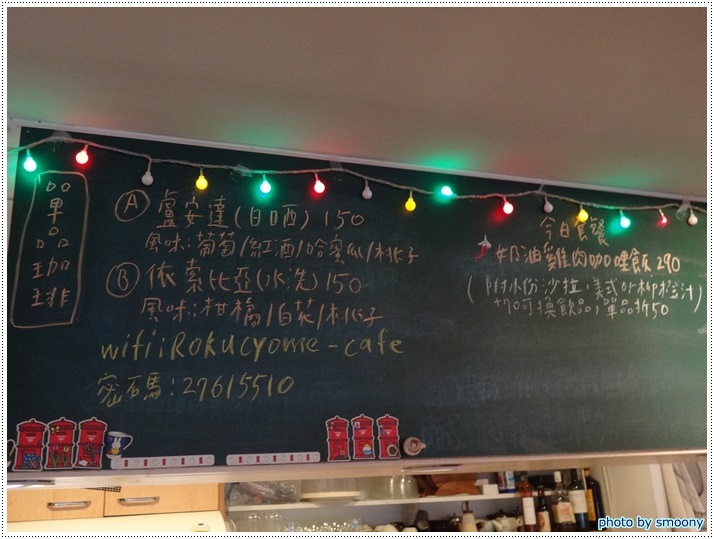 單品咖啡
Ⓐ 盧安達(日晒) 150
風味:葡萄/紅酒/哈蜜瓜/桃子
Ⓑ 依索比亞(水洗)150
風味:柑橘/白花/桃子
wifi:Rokucyome-cafe
密碼:27615510
今日套餐
奶油雞肉咖哩飯 290
(附小份沙拉,美式or柳橙汁)
+70可換飲品,單品折50
photo by smoony